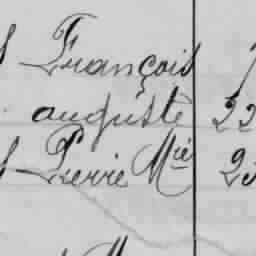 François
auguste 22
Pierre Mie 23